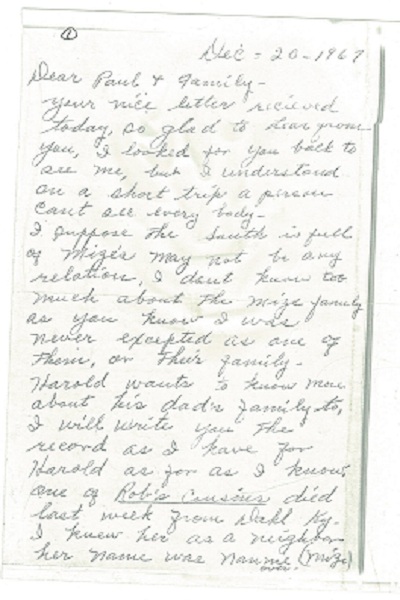 ①
Dec - 20 - 1967
Dear Paul & Family -
your nice letter recieved
today, so glad to hear from
you, I looked for you back to
see me, but I understand
on a short trip a person
cant see every body -
I suppose the South is full
of Mizes may not be any
relation, I dont know too
much about the Mize family
as you know I was
never excepted as one of
them, or their family -
Harold wants to know more
about his dad's family to,
I will write you the
record as I have for
Harold as far as I know
one of Rob's cousins died
last week from Ky.
I knew her as a neighbor
her name was Nannie (Mize)
over